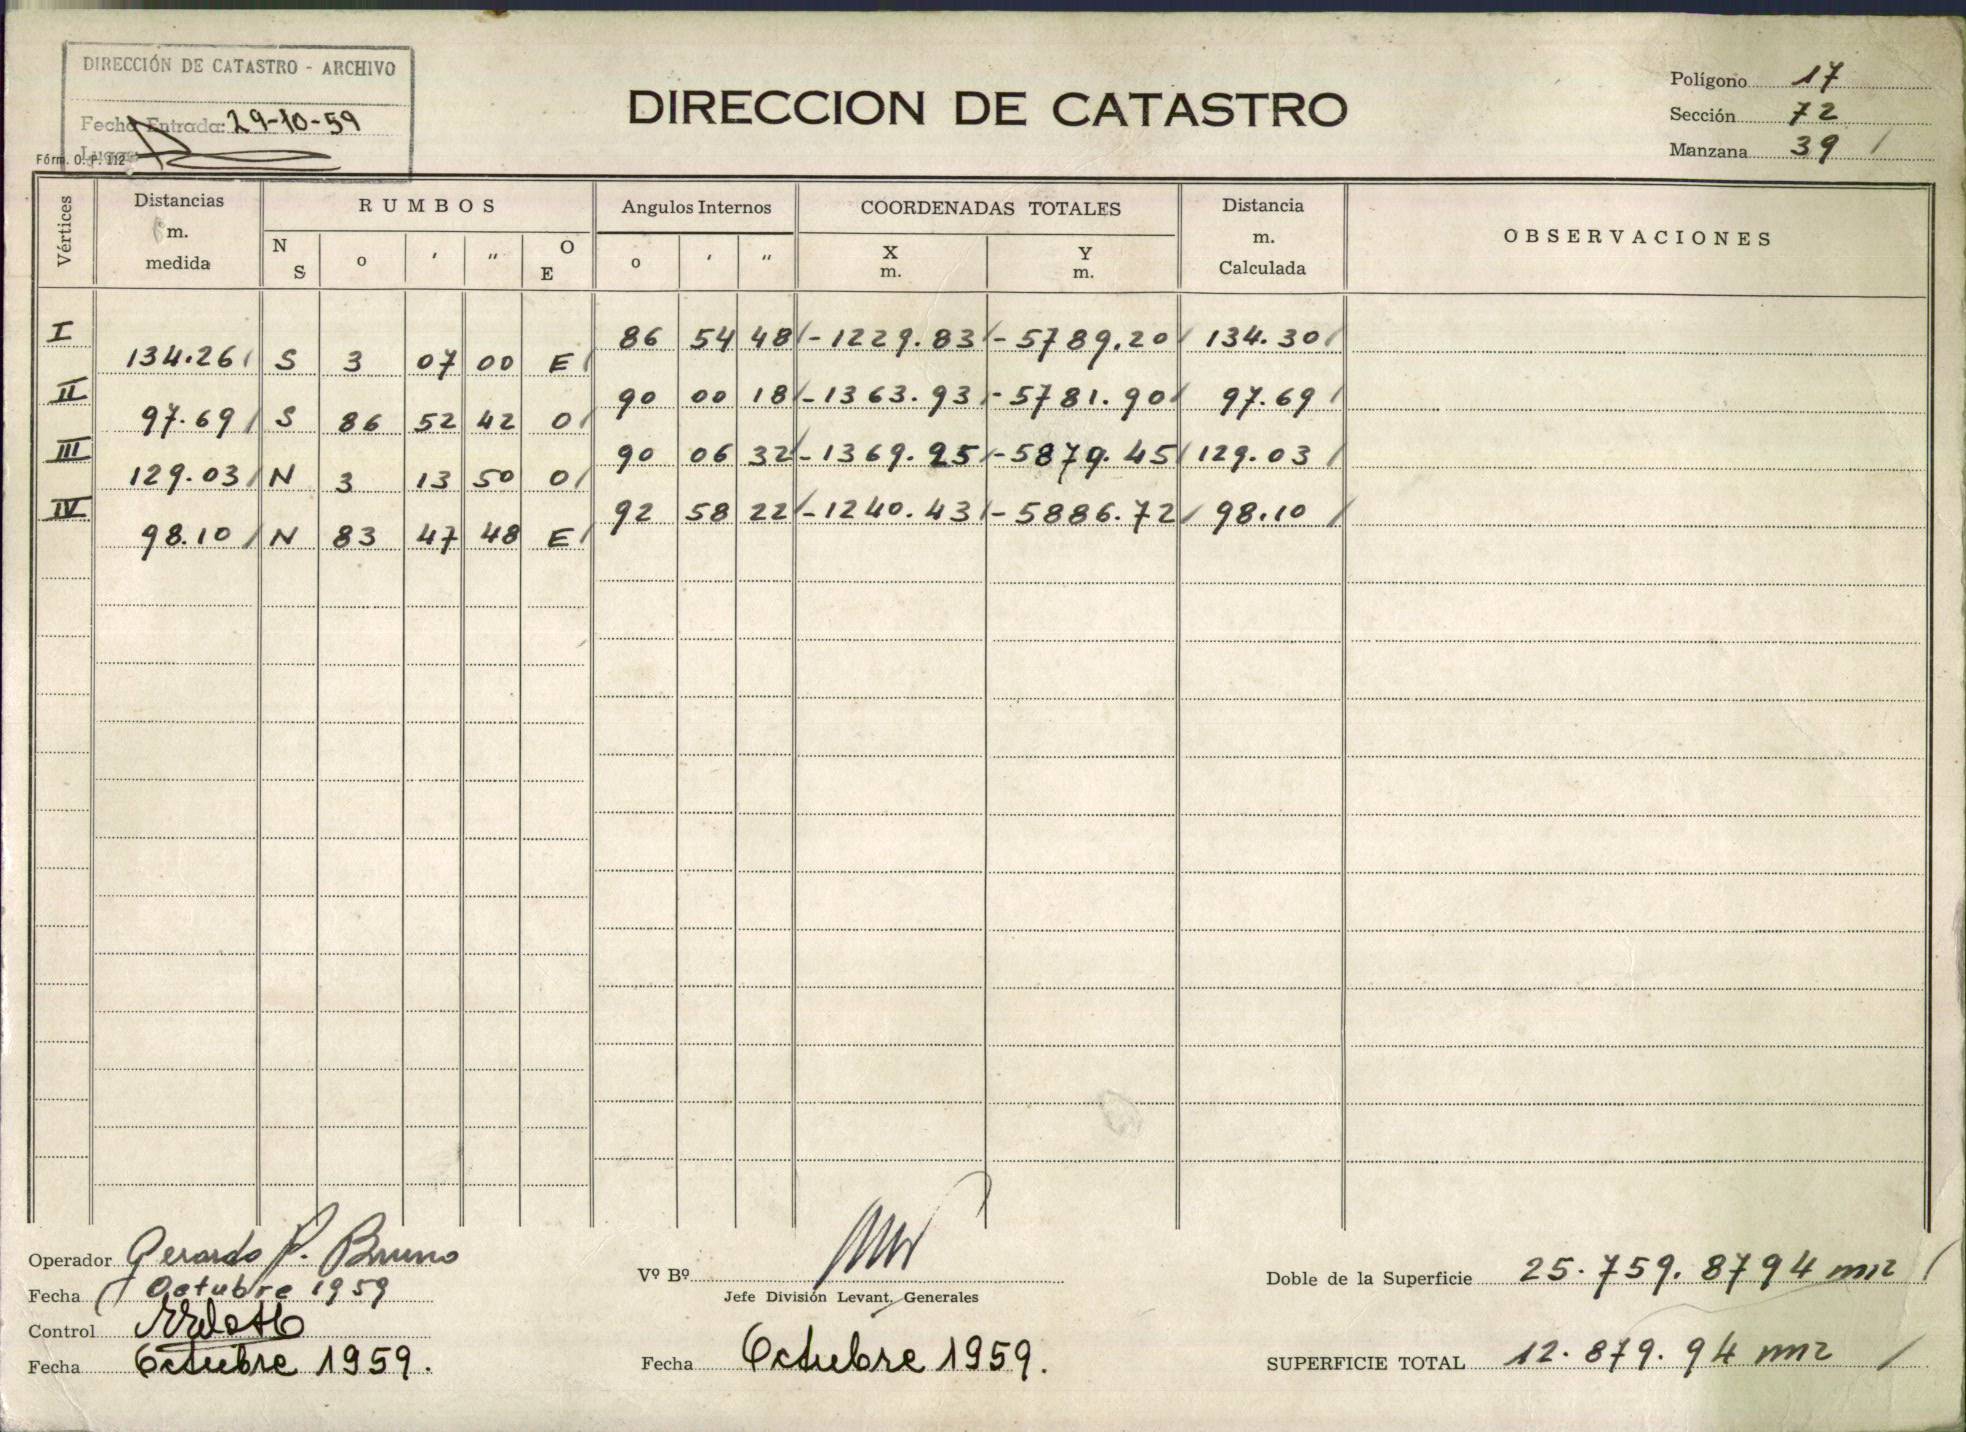 DIRECCIÓN DE CATASTRO - ARCHIVO
Fecha Entrada: 29-10-59
Fórm. O. P. 112
DIRECCION DE CATASTRO
Polígono 17
Sección 72
Manzana 39
Vértices Distancias m. medida RUMBOS Angulos Internos COORDENADAS TOTALES Distancia m. Calculada OBSERVACIONES
N S o ' " O E o ' " X m. Y m.
I 86 54 48 -1229.83 -5789.20 134.30
134.26 S 3 07 00 E
II 90 00 18 -1363.93 -5781.90 97.69
97.69 S 86 52 42 O
III 90 06 32 -1369.25 -5879.45 129.03
129.03 N 3 13 50 O
IV 92 58 22 -1240.43 -5886.72 98.10
98.10 N 83 47 48 E
Operador Gerardo P. Bruno
Fecha Octubre 1959
Control
Fecha Octubre 1959.
Vº Bº
Jefe División Levant. Generales
Fecha Octubre 1959.
Doble de la Superficie 25.759.8794 m2
SUPERFICIE TOTAL 12.879.94 m2